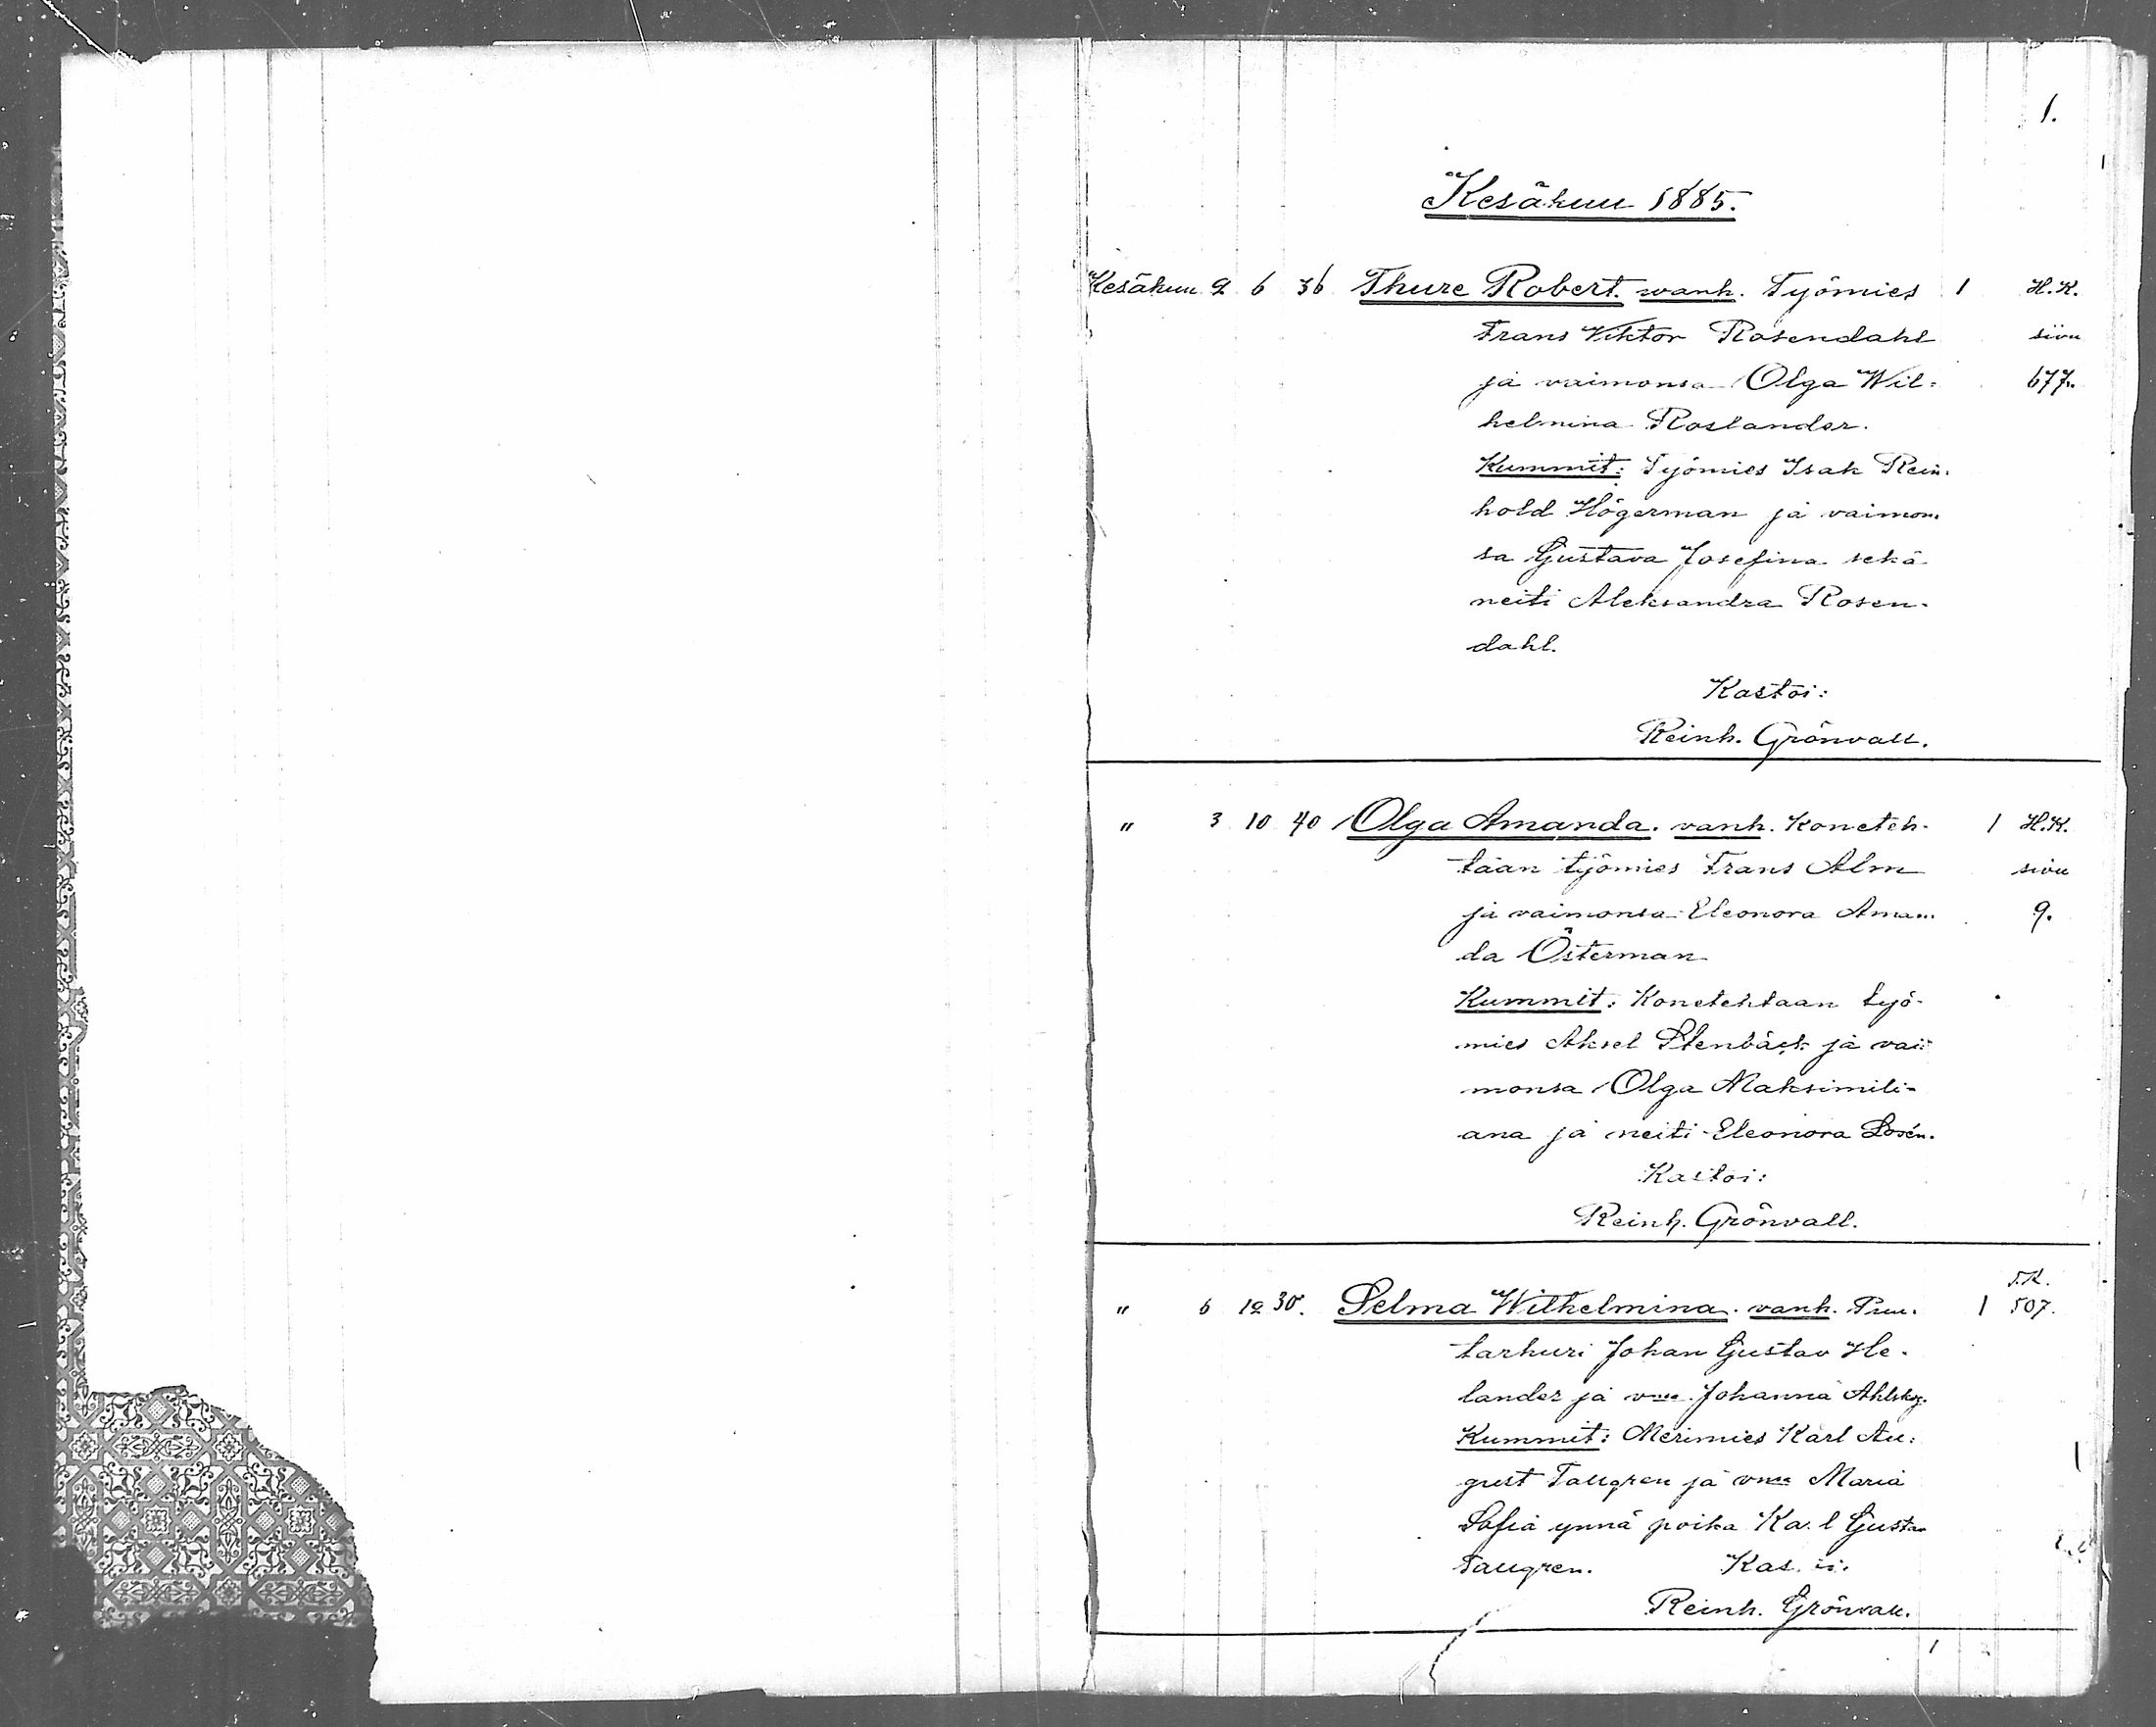 1.
Kesäkuu 1885.
Kesäkuu 2 6 36 Thure Robert. wanh. Työmies 1 H.K.
Frans Viktor Rosendahl sivu
ja vaimonsa Olga Wil- 677.
helmina Roslander.
Kummit: Työmies Isak Rein-
hold Högerman ja vaimon-
sa Gustava Josefina sekä
neiti Aleksandra Rosen-
dahl.
Kastoi:
Reinh. Grönvall.
" 3 10 40 Olga Amanda. vanh. Koneteh- 1 H.K.
taan työmies Frans Alm sivu
ja vaimonsa Eleonora Aman- 9.
da Österman
Kummit: Konetehtaan työ-
mies Aksel Stenbäck ja vai-
monsa Olga Maksimili-
ana ja neiti Eleonora Losén.
Kastoi:
Reinh. Grönvall.
" 6 12 30. Selma Wilhelmina. vanh. Puu- 1 507.
tarhuri Johan Gustav He-
lander ja vmo Johanna Ahlskog.
Kummit: Merimies Karl Au-
gust Tallgren ja vmo Maria
Sofia ynnä poika Karl Gustav
Tallgren. Kastoi:
Reinh. Grönvall.